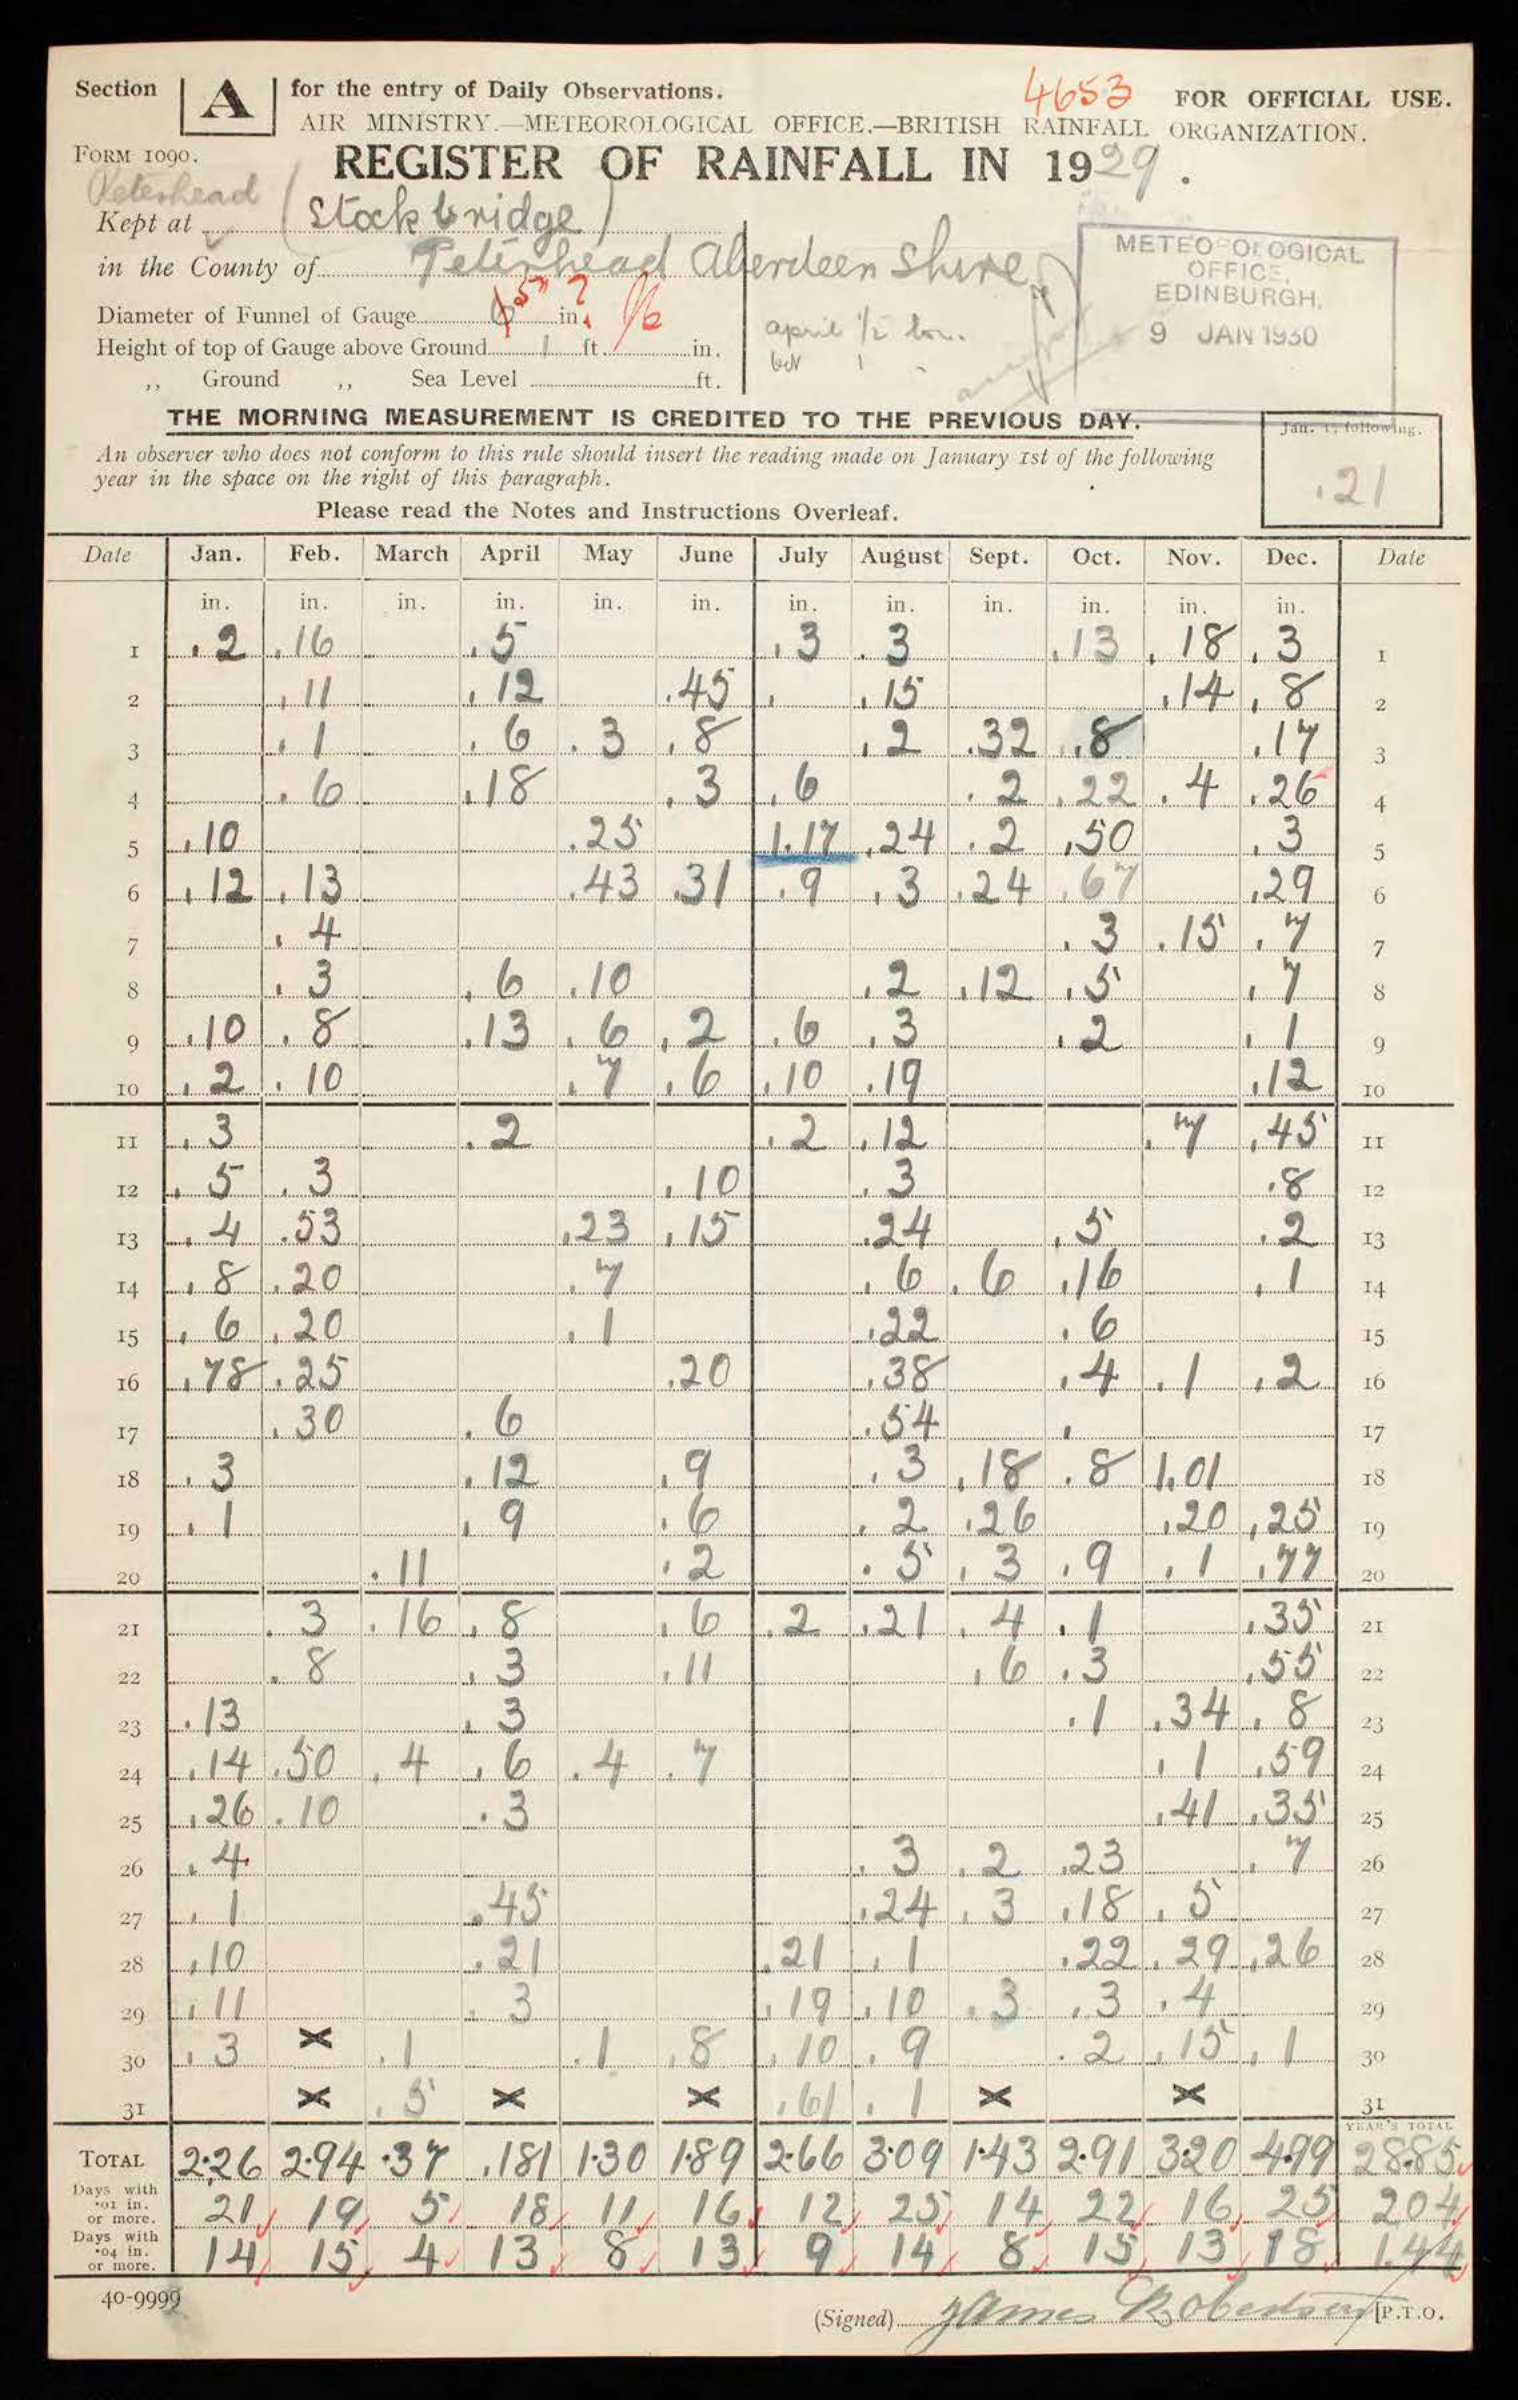 Section A for the entry of Daily Observations. 4653 FOR OFFICIAL USE.
AIR MINISTRY.—METEOROLOGICAL OFFICE.—BRITISH RAINFALL ORGANIZATION.
FORM 1090.
REGISTER OF RAINFALL IN 1929.
Peterhead
Kept at (Stockbridge)
in the County of Peterhead Aberdeen Shire
METEOROLOGICAL
OFFICE,
EDINBURGH.
9 JAN 1930
Diameter of Funnel of Gauge 6 5" ? in.
Height of top of Gauge above Ground 1 ft. in.
,, Ground ,, Sea Level ft.
april 1/2 low.
THE MORNING MEASUREMENT IS CREDITED TO THE PREVIOUS DAY.
An observer who does not conform to this rule should insert the reading made on January 1st of the following
year in the space on the right of this paragraph.
Jan. 1, following.
.21
Please read the Notes and Instructions Overleaf.
Date Jan. Feb. March April May June July August Sept. Oct. Nov. Dec. Date
in. in. in. in. in. in. in. in. in. in. in. in.
1 .2 .16 .5 .3 .3 .13 .18 .3 1
2 .11 .12 .45 . .15 .14 .8 2
3 .1 .6 .3 .8 .2 .32 .8 .17 3
4 .6 .18 .3 .6 .2 .22 .4 .26 4
5 .10 .25 1.17 .24 .2 .50 .3 5
6 .12 .13 .43 .31 .9 .3 .24 .67 .29 6
7 .4 .3 .15 .7 7
8 .3 .6 .10 .2 .12 .5 .7 8
9 .10 .8 .13 .6 .2 .6 .3 .2 .1 9
10 .2 .10 .7 .6 .10 .19 .12 10
11 .3 .2 .2 .12 .7 .45 11
12 .5 .3 .10 .3 .8 12
13 .4 .53 .23 .15 .24 .5 .2 13
14 .8 .20 .7 .6 .6 .16 .1 14
15 .6 .20 .1 .22 .6 15
16 .78 .25 .20 .38 .4 .1 .2 16
17 .30 .6 .54 . 17
18 .3 .12 .9 .3 .18 .8 1.01 18
19 .1 .9 .6 .2 .26 .20 .25 19
20 .11 .2 .5 .3 .9 .1 .77 20
21 .3 .16 .8 .6 .2 .21 .4 .1 .35 21
22 .8 .3 .11 .6 .3 .55 22
23 .13 .3 .1 .34 .8 23
24 .14 .50 .4 .6 .4 .7 .1 .59 24
25 .26 .10 .3 .41 .35 25
26 .4 .3 .2 .23 .7 26
27 .1 .45 .24 .3 .18 .5 27
28 .10 .21 .21 .1 .22 .29 .26 28
29 .11 .3 .19 .10 .3 .3 .4 29
30 .3 × .1 .1 .8 .10 .9 .2 .15 .1 30
31 × .5 × × .61 .1 × × 31
YEAR'S TOTAL
TOTAL 2.26 2.94 .37 .181 1.30 1.89 2.66 3.09 1.43 2.91 3.20 4.99 28.85
Days with
.01 in.
or more. 21 19 5 18 11 16 12 25 14 22 16 25 204
Days with
.04 in.
or more. 14 15 4 13 8 13 9 14 8 15 13 18 144
40-9999
(Signed) James Robertson [P.T.O.